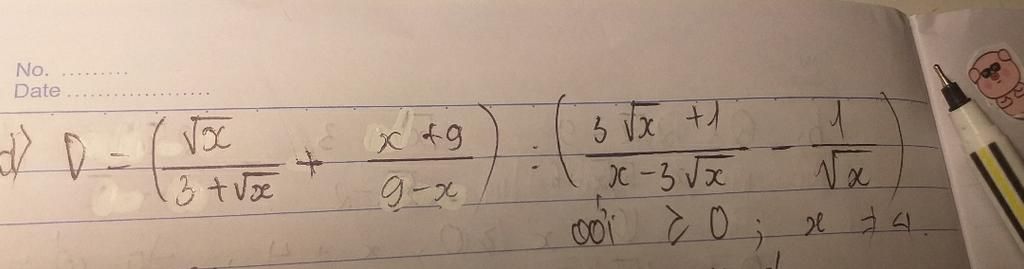 No. .........
Date ...................
d) D = (√x / (3 + √x) + (x + 9) / (9 - x)) : ((3√x + 1) / (x - 3√x) - 1 / √x)
với ≥ 0 ; x ≠ 4.